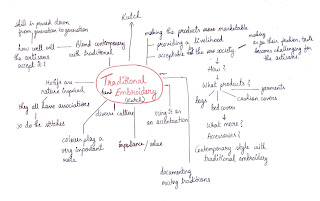 Kutch
skill is passed down
from generation to generation
how well will
the artisans
accept it?
Blend contemporary
with traditional
making the products more marketable
providing a livelihood
acceptable for the new society
making
into fashion, taste
becomes challenging for
the artisans
How?
What products?
garments
bags
cushion covers
bed covers
What more?
Accessories?
Contemporary style with
traditional embroidery
Traditional
hand Embroidery
(Kutch)
Motifs are
nature inspired
they all have associations
so do the stitches
diverse culture
colours play a
very important
role
importance/value
using it as
an accentuation
documenting
existing traditions